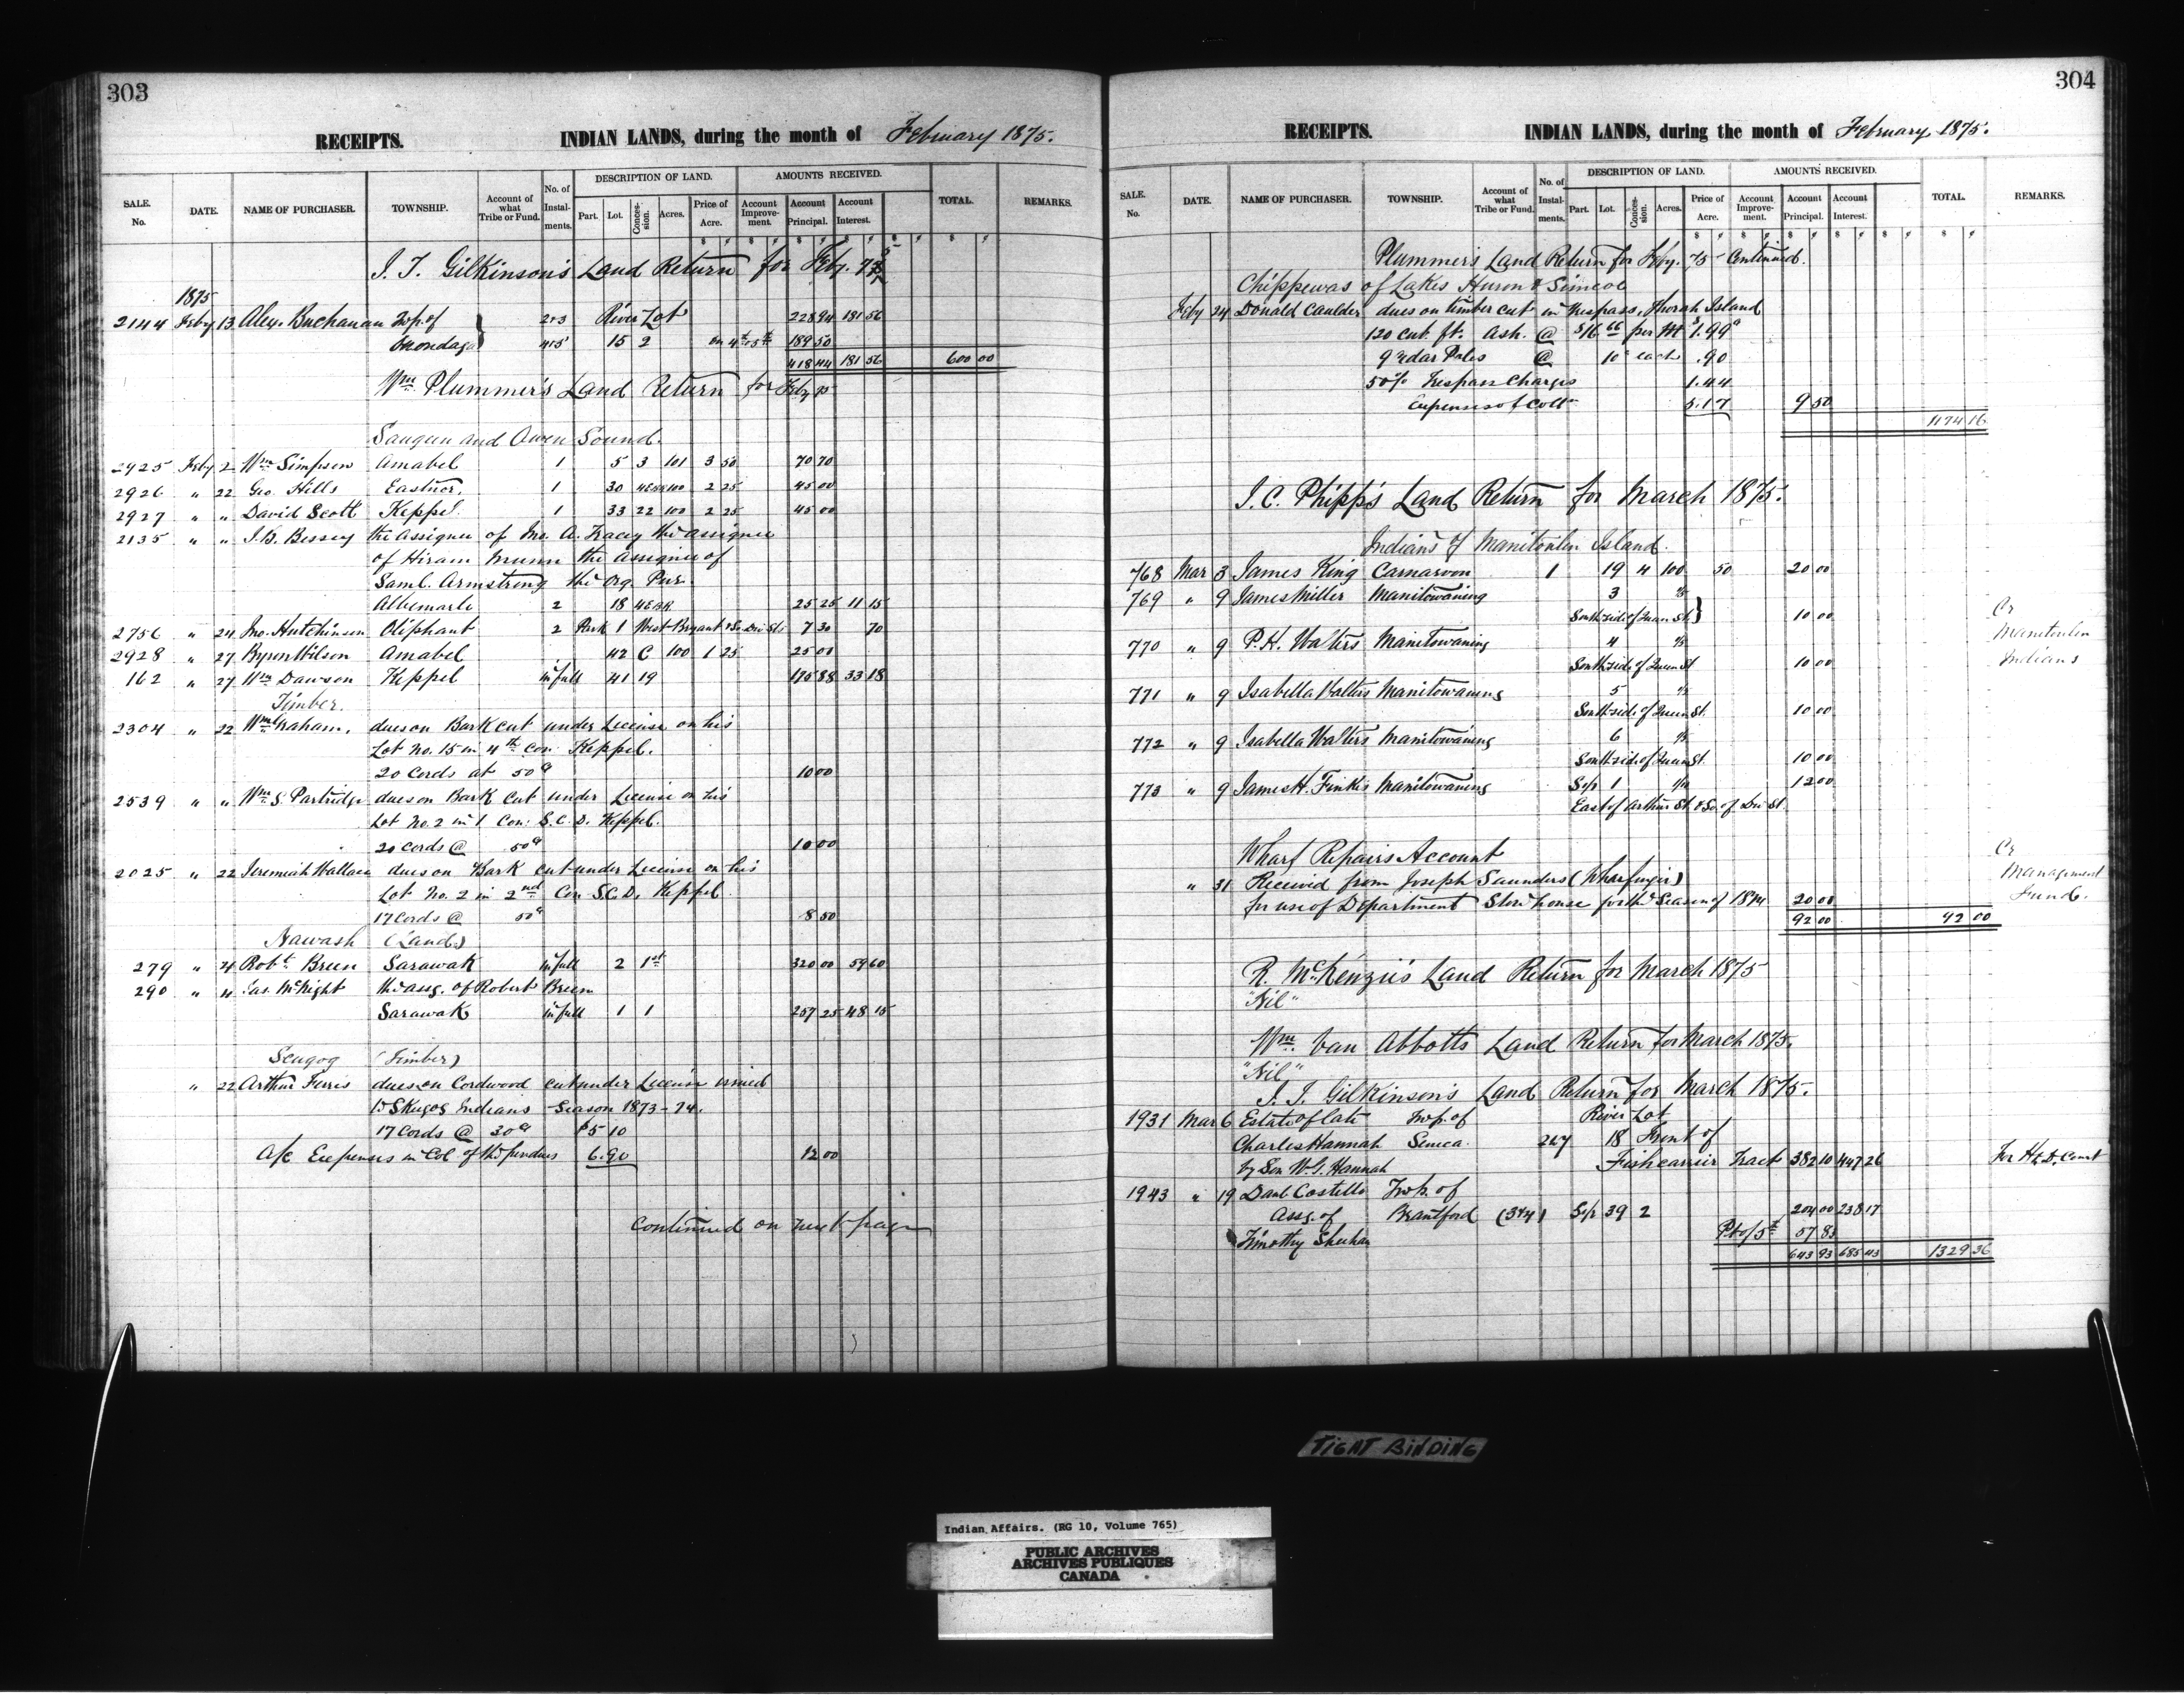 303
RECEIPTS. INDIAN LANDS, during the month of February 1875.
SALE. No. DATE. NAME OF PURCHASER. TOWNSHIP. Account of what Tribe or Fund. No. of Instalments. DESCRIPTION OF LAND. Part. Lot. Concession. Acres. Price of Acre. AMOUNTS RECEIVED. Account Improvement. Account Principal. Account Interest. TOTAL. REMARKS.
J. T. Gilkinson's Land Return for Feby. 75
1875
2144 Feby 13 Alex. Buchanan Twp. of 2+3 River Lot 228 94 181 56
Onondaga 4+5 15 2 on 4th + 5th 189 50
418 44 181 56 600 00
Wm Plummer's Land Return for Feby 75
Saugeen and Owen Sound.
2925 Feby 2 Wm Simpson Amabel 1 5 3 101 3 50 70 70
2926 " 22 Geo. Hills Eastnor. 1 30 4EBR 100 2 25 45 00
2927 " " David Scott Keppel. 1 33 22 100 2 25 45 00
2135 " " J. B. Bessey the Assignee of Jno. A. Tracey the assignee
of Hiram Munn the assignee of
Saml. Armstrong the Org. Pur.
Albemarle 2 18 4EBR 25 25 11 15
2756 " 24 Jno. Hutchinson Oliphant 2 Park 1 West Bryant & So. Div Sts 7 30 70
2928 " 27 Byron Wilson Amabel 42 C 100 1 25 25 00
162 " 27 Wm Dawson Keppel in full 41 19 175 88 33 18
Timber.
2304 " 22 Wm Graham. dues on Bark cut under License on his
Lot No. 15 in 4th Con. Keppel.
20 Cords at 50c 10 00
2539 " " Wm S. Partridge dues on Bark Cut under License on his
Lot No. 2 in 1 Con: S.C.D. Keppel.
20 Cords @ 50c 10 00
2025 " 22 Jeremiah Wallace dues on Bark cut under License on his
Lot No. 2 in 2nd Con S.C.D. Keppel.
17 Cords @ 50c 8 50
Nawash (Lands)
279 " 4 Robt. Breen Sarawak in full 2 1st 320 00 59 60
290 " 4 Jas. McNight the assg. of Robert Breen
Sarawak in full 1 1 257 25 48 15
Scugog (Timber)
" 22 Arthur Ferris dues on Cordwood cut under License issued
to Skugog Indians Season 1873-74.
17 Cords @ 30c $5 10
A/c Expenses in Col. of the pr dues 6.90 12 00
Continued on next page
304
RECEIPTS. INDIAN LANDS, during the month of February 1875.
SALE. No. DATE. NAME OF PURCHASER. TOWNSHIP. Account of what Tribe or Fund. No. of Instalments. DESCRIPTION OF LAND. Part. Lot. Concession. Acres. Price of Acre. AMOUNTS RECEIVED. Account Improvement. Account Principal. Account Interest. TOTAL. REMARKS.
Plummer's Land Return for Feby. 75 Continued.
Chippewas of Lakes Huron & Simcoe
Feby 24 Donald Caulder dues on timber cut in trespass, Thorah Island
120 cub. ft. Ash. @ $16.66 per M ft $1.99c
9 cedar Poles @ 10c each .90
50% trespass charges 1.44
Expenses of Coll 5.17 9 50
1174 16
J. C. Phipps Land Return for March 1875.
Indians of Manitoulin Island.
768 Mar 3 James King Carnarvon 1 19 4 100 50 20 00
769 " 9 James Miller Manitowaning 3
South side of Queen St. 10 00 Cr
Manitoulin
Indians
770 " 9 P. H. Walters Manitowaning 4
South side of Queen St 10 00
771 " 9 Isabella Walters Manitowaning 5
South side of Queen St. 10 00
772 " 9 Isabella Walters Manitowaning 6
South side of Queen St. 10 00
773 " 9 James H. Finkis Manitowaning S/p 1 12 00
East of Arthur St. & So. of Div St.
Wharf Repairs Account Cr
" 31 Received from Joseph Saunders (Wharfinger) Management
for use of Department Storehouse for the Season of 1874 20 00 Fund.
92 00 92 00
R. McKenzie's Land Return for March 1875
"Nil"
Wm. Van Abbotts Land Return for March 1875.
"Nil"
J. T. Gilkinson's Land Return for March 1875.
1931 Mar 6 Estate of late Twp. of River Lot
Charles Hannah Seneca. 2 to 7 18 Front of
by Son W. G. Hannah Fishcarrier Tract 382 10 447 26 For Hd. Qr. Court
1943 " 19 Danl. Costello Twp. of
Assg. of Brantford (3+4) S/p 39 2 204 00 238 17
Timothy Sheehan Pt of 5th 57 83
643 93 685 43 1329 36
TIGHT BINDING
Indian Affairs. (RG 10, Volume 765)
PUBLIC ARCHIVES
ARCHIVES PUBLIQUES
CANADA